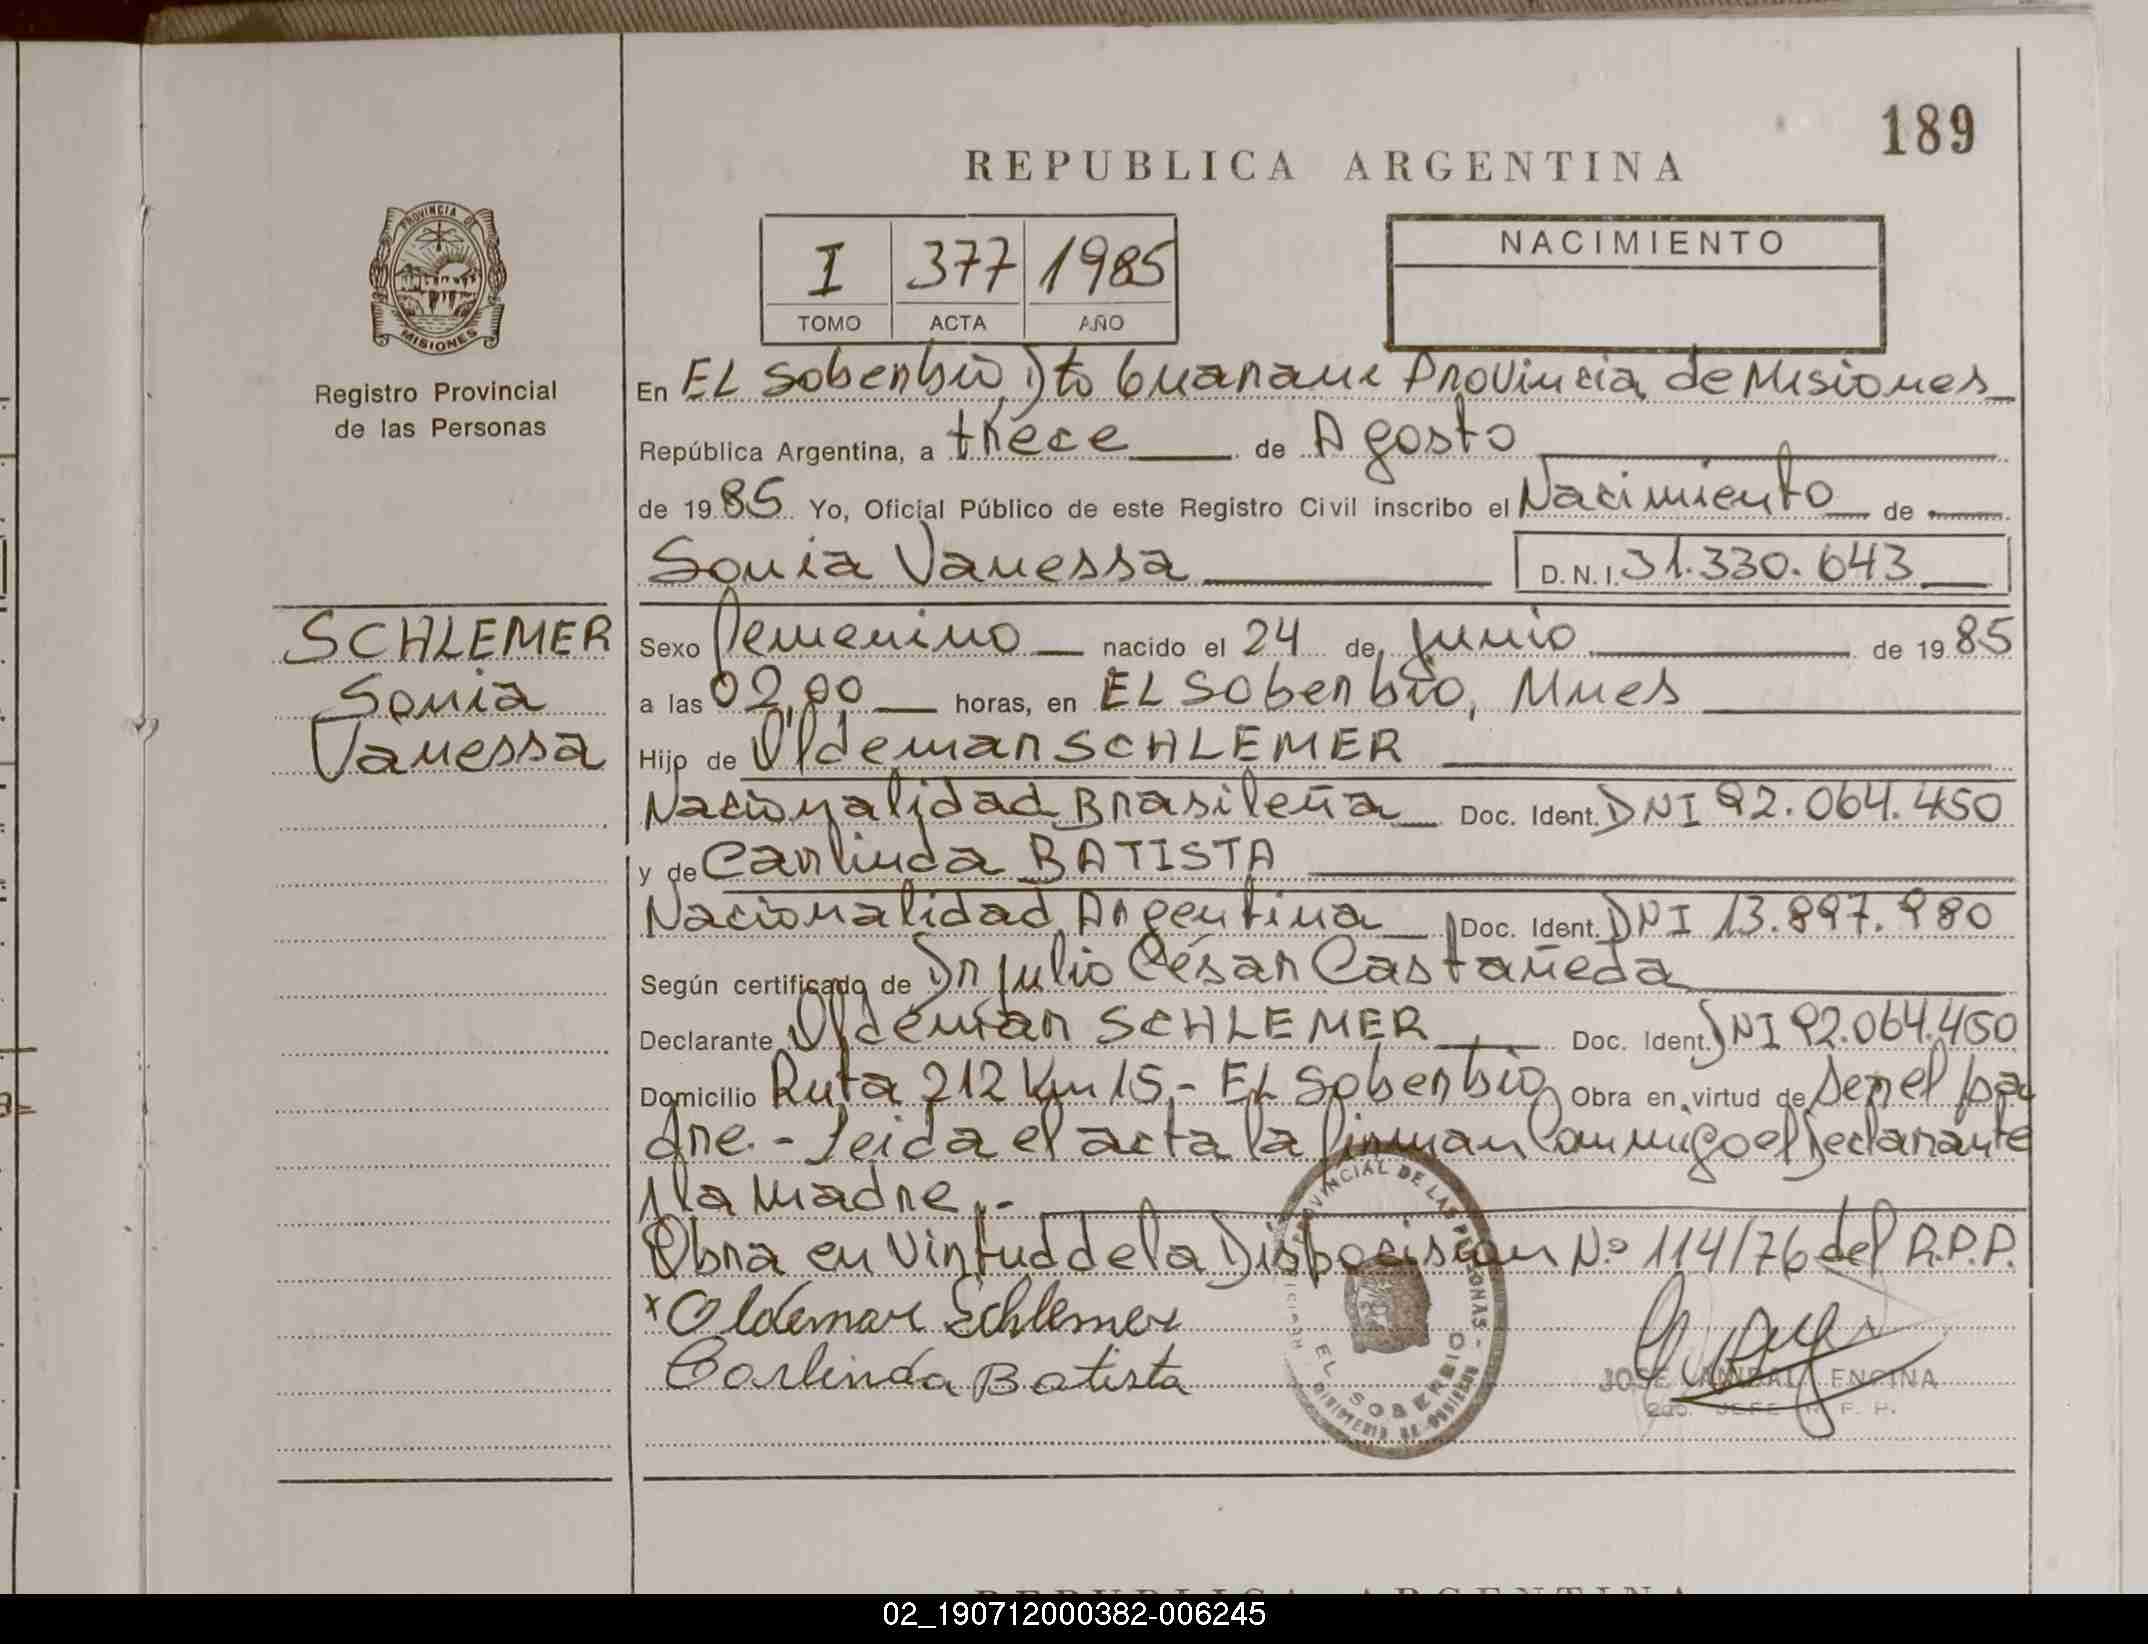 189
REPUBLICA ARGENTINA
PROVINCIA DE
MISIONES
Registro Provincial
de las Personas
I 377 1985
TOMO ACTA AÑO
NACIMIENTO
En EL Soberbio, Dto Guarani Provincia de Misiones
República Argentina, a trece de Agosto
de 1985 Yo, Oficial Público de este Registro Civil inscribo el Nacimiento de
Sonia Vanessa D.N.I. 31.330.643
SCHLEMER
Sonia
Vanessa
Sexo Femenino nacido el 24 de Junio de 1985
a las 02,00 horas, en EL Soberbio, Mnes
Hijo de Oldemar SCHLEMER
Nacionalidad Brasileña Doc. Ident. DNI 92.064.450
y de Carlinda BATISTA
Nacionalidad Argentina Doc. Ident. DNI 13.897.980
Según certificado de Dr Julio César Castañeda
Declarante Oldemar SCHLEMER Doc. Ident. DNI 92.064.450
Domicilio Ruta 212 Km 15,- EL Soberbio Obra en virtud de Ser el pa
dre.- Leida el acta la firman Conmigo el Declarante
y la Madre.-
Obra en Virtud de la Disposision Nº 114/76 del R.P.P.
x Oldemar Schlemer
Carlinda Batista
PROVINCIAL DE LAS PERSONAS
EL SOBERBIO
JOSE ANIBAL ENCINA
2do. JEFE
REPUBLICA ARGENTINA
02_190712000382-006245